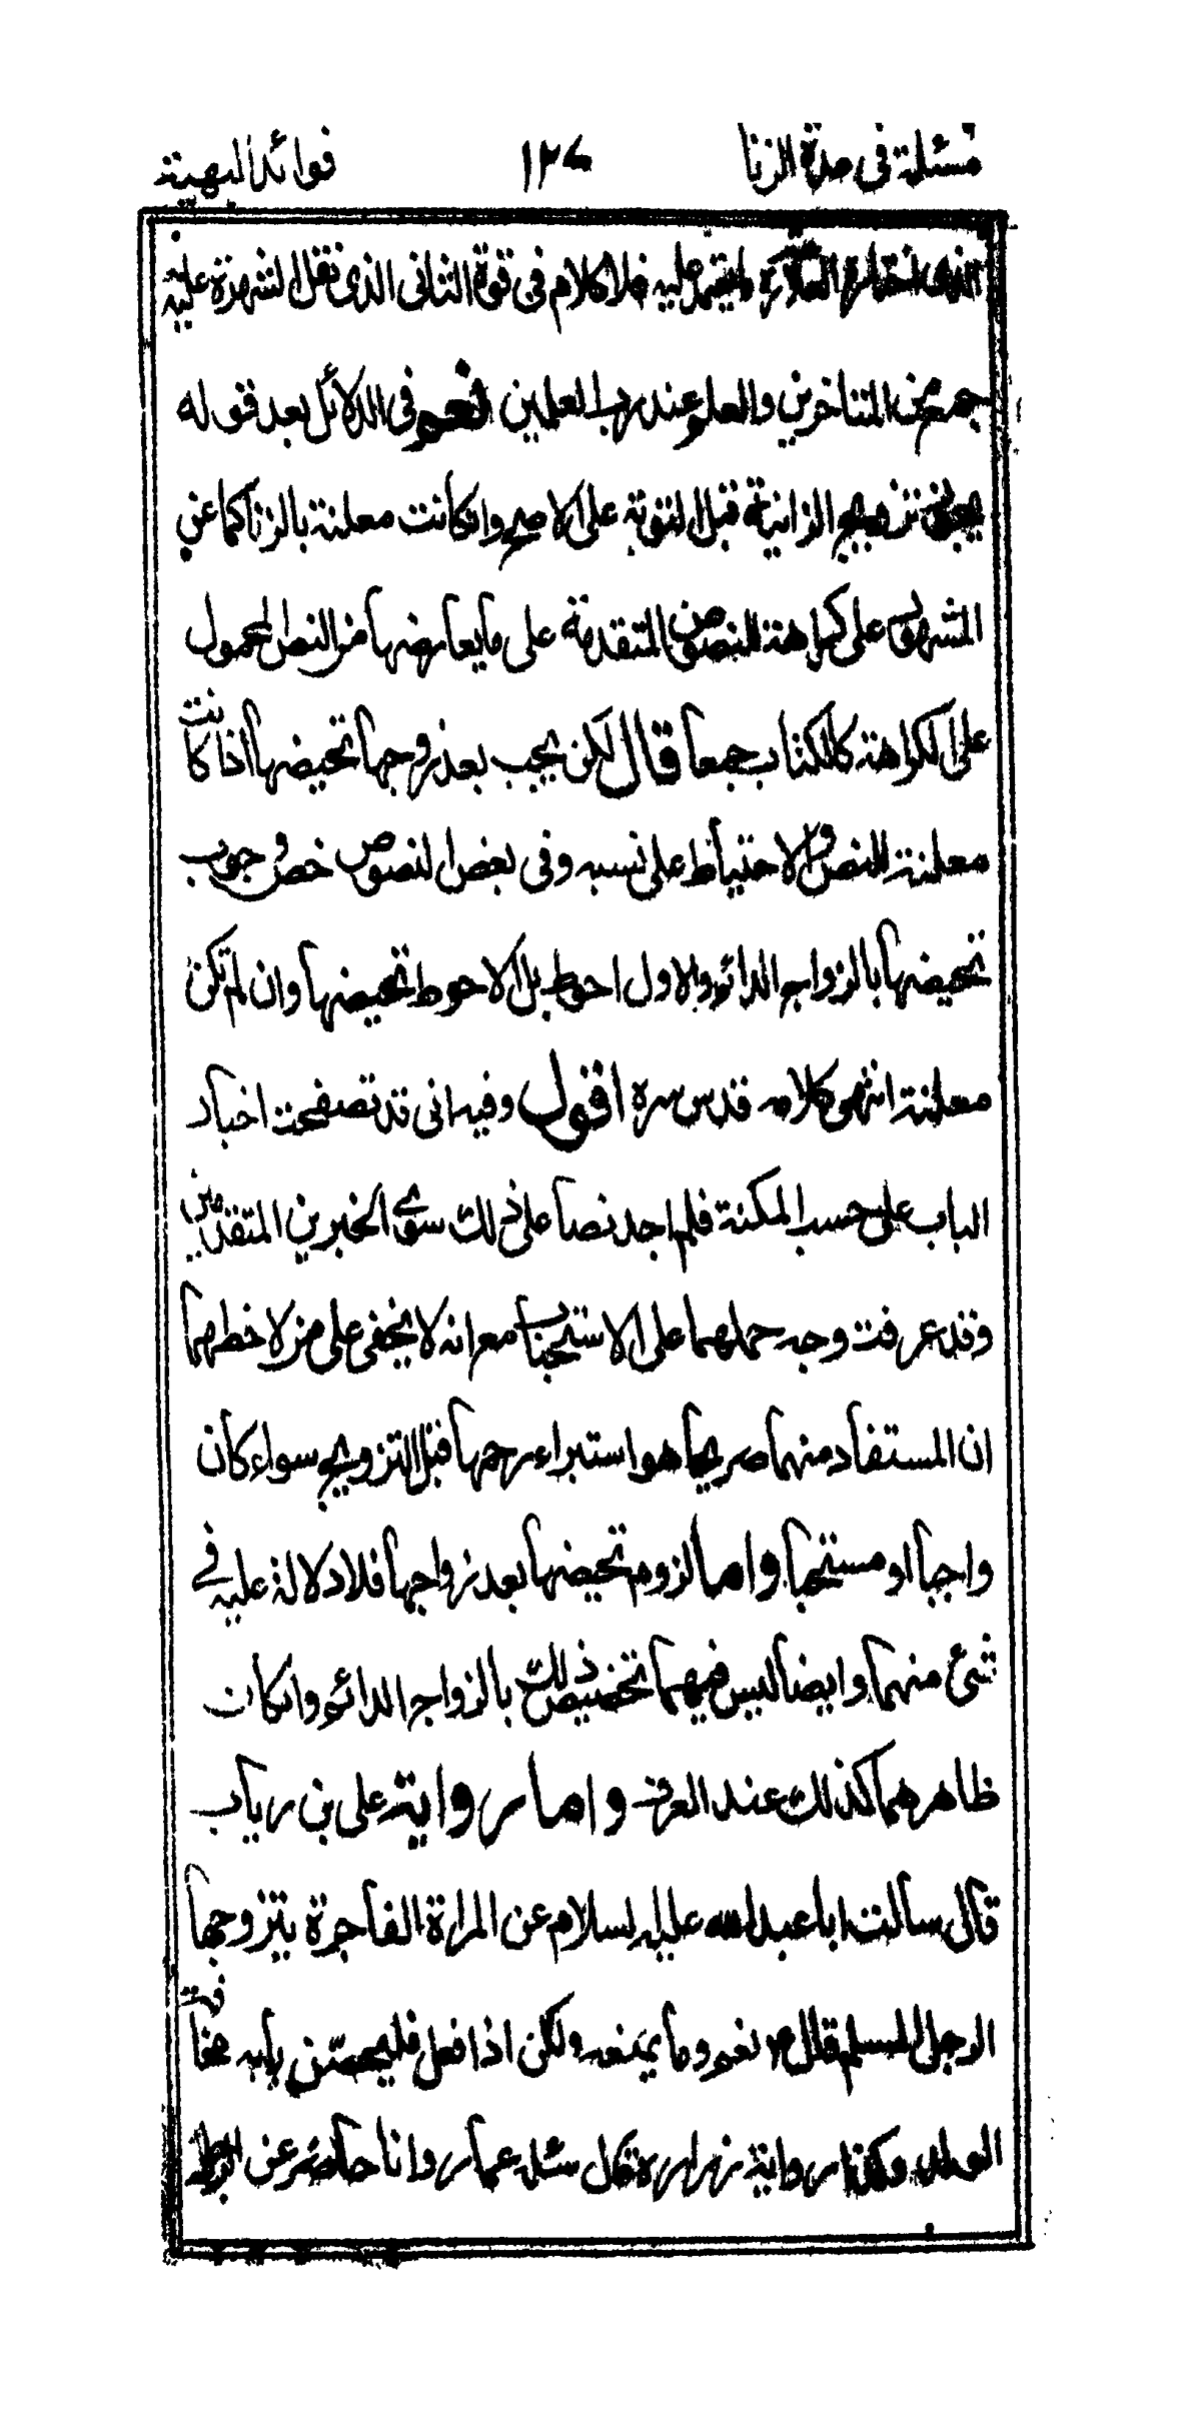 مسئلة فى عدة الزنا ١٢٧ فوائد البهية
الذى اختاره العلامة واعتمد عليه فلا كلام فى قوة الثانى الذى نقل الشهرة عليه
جمع من المتاخرين والعلم عند رب العلمين نعم فى الدلائل بعد قوله
يجوز تزويج الزانية قبل التوبة على الاصح وانكانت معلنة بالزنا كما عن
المشهور على كراهة للنصوص المتقدمة على ما يعارضها من النص المحمول
على الكراهة كالكتاب جمعا قال لكن يجب بعد زوجها تحيضها اذا كانت
معلنة للنص والاحتياط على نسبه وفى بعض النصوص خص وجوب
تحيضها بالزواج الدائم والاول احوط بل الاحوط تحيضها وان لم تكن
معلنة انتهى كلامه قدس سره اقول وفيه انى قد تصفحت اخبار
الباب على حسب المكنة فلم اجد نصا على ذلك سوى الخبرين المتقدمين
وقد عرفت وجه حملهما على الاستحباب مع انه لا يخفى على من لاحظهما
ان المستفاد منهما صريحا هو استبراء رحمها قبل التزويج سواء كان
واجبا او مستحبا واما لزوم تحيضها بعد زواجها فلا دلالة عليه فى
شئ منهما وايضا ليس فيهما تخصيص ذلك بالزواج الدائم وانكان
ظاهرهما كذلك عند العرف واما رواية على بن رياب
قال سالت ابا عبد الله عليه السلام عن المراة الفاجرة يتزوجها
الرجل المسلم قال نعم وما يمنعه ولكن اذا فعل فليحصن بابه مخافة
الولد وكذا رواية زرارة قال سئله عمار وانا حاضر عن الرجل